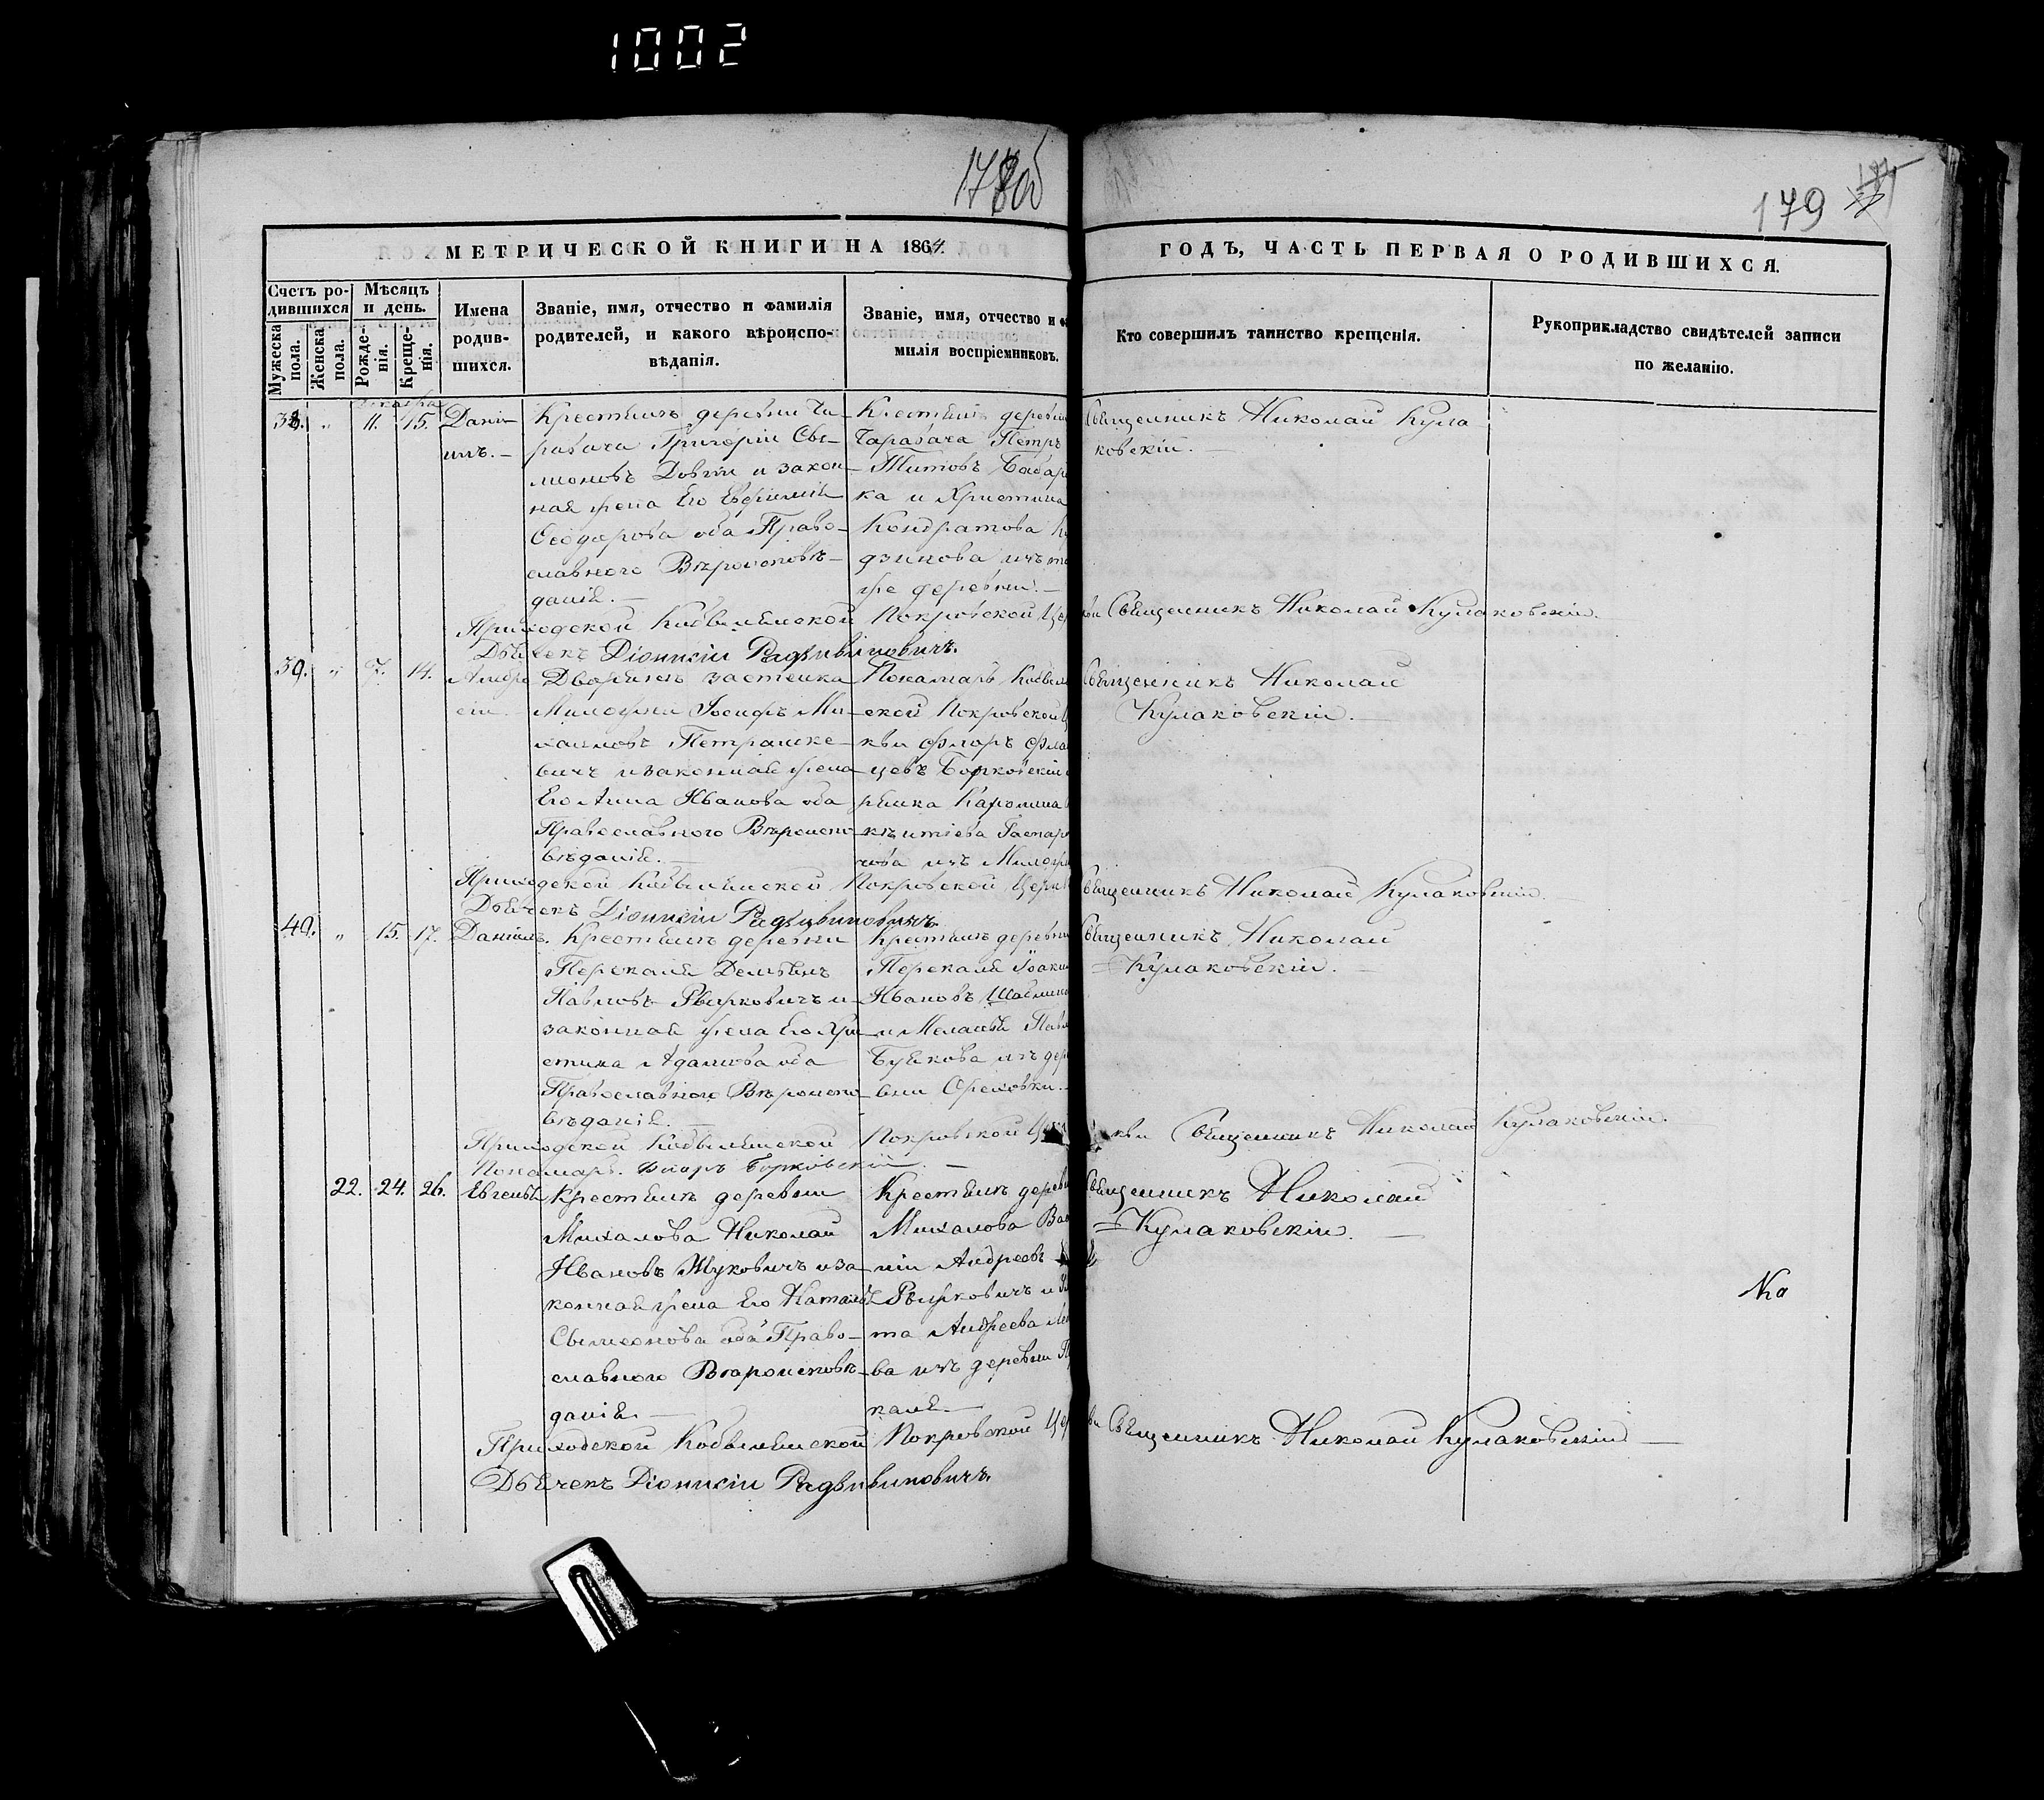 1002
178об
179
МЕТРИЧЕСКОЙ КНИГИ НА 1864.
ГОДЪ, ЧАСТЬ ПЕРВАЯ О РОДИВШИХСЯ.
Счетъ ро-
дившихся
Мужеска
пола.
Женска
пола.
Мѣсяцъ
и день.
Рожде-
нія.
Креще-
нія.
Имена
родив-
шихся.
Званіе, имя, отчество и фамилія
родителей, и какого вѣроиспо-
вѣданія.
Званіе, имя, отчество и фа
милія воспріемниковъ.
Кто совершилъ таинство крещенія.
Рукоприкладство свидѣтелей записи
по желанію.
Декабра
38. „ 11. 15.
Дані-
илъ. –
Крестьянъ деревни Ча-
рабача Григорій Сѵ-
меоновъ и закон-
ная жена Его Евфимія
Ѳеодорова оба Право-
славного Вѣроисповѣ-
данія. –
Крестьянъ деревни
Чарабача Петръ
Титовъ
ка и Христина
Кондратова
дзикова изъ то
же деревни. –
Священникъ Николай Кула
ковскій. –
Приходской Кобыльской Покровской Церкви Священникъ Николай Кулаковскій. –
Дьячекъ Діонисій Радзивиновичъ.
39. „ 7. 14.
Андре
ій.
Дворянинъ застенка
Милоржи Іосифъ Ми-
хаиловъ Петрашке-
вичъ и законная жена
Его Анна Иванова оба
Православного Вѣроиспо-
вѣданія. –
Понамарь Кобыль
ской Покровской Це
кви Флоръ
цовъ Борковскій
рянка Каролина
Гаспаро
изъ Милорж
Священникъ Николай
Кулаковскій. –
Приходской Кобыльской Покровской Церкви Священникъ Николай Кулаковскій. –
Дьячекъ Діонисій Радзивиновичъ.
40. „ 15. 17.
Даніилъ.
Крестьянъ деревни
Перекаля Демьянъ
Павловъ Рыжковичъ и
законная жена Его Хри-
стина Адамова оба
Православного Вѣроиспо-
вѣданія. –
Крестьянъ деревни
Перекаля Іоаким
Ивановъ
и Меланія Павл
изъ дере
вни Ореховки. –
Священникъ Николай
Кулаковскій. –
Приходской Кобыльской Покровской Церкви Священникъ Николай Кулаковскій. –
Понамарь. Флоръ Борковскій. –
22. 24. 26.
Евгенія
Крестьянъ деревни
Михалова Николай
Ивановъ Жуковичъ и за-
конная жена Его Наталья
Сѵмеонова оба Право-
славного Вѣроисповѣ-
данія. –
Крестьянъ деревни
Михалова
Андреевъ
Рыжковичъ и
та Андреева
ва изъ деревни
каля. –
Священникъ Николай
Кулаковскій. –
Приходской Кобыльской Покровской Церкви Священникъ Николай Кулаковскій –
Дьячекъ Діонисій Радзивиновичъ.